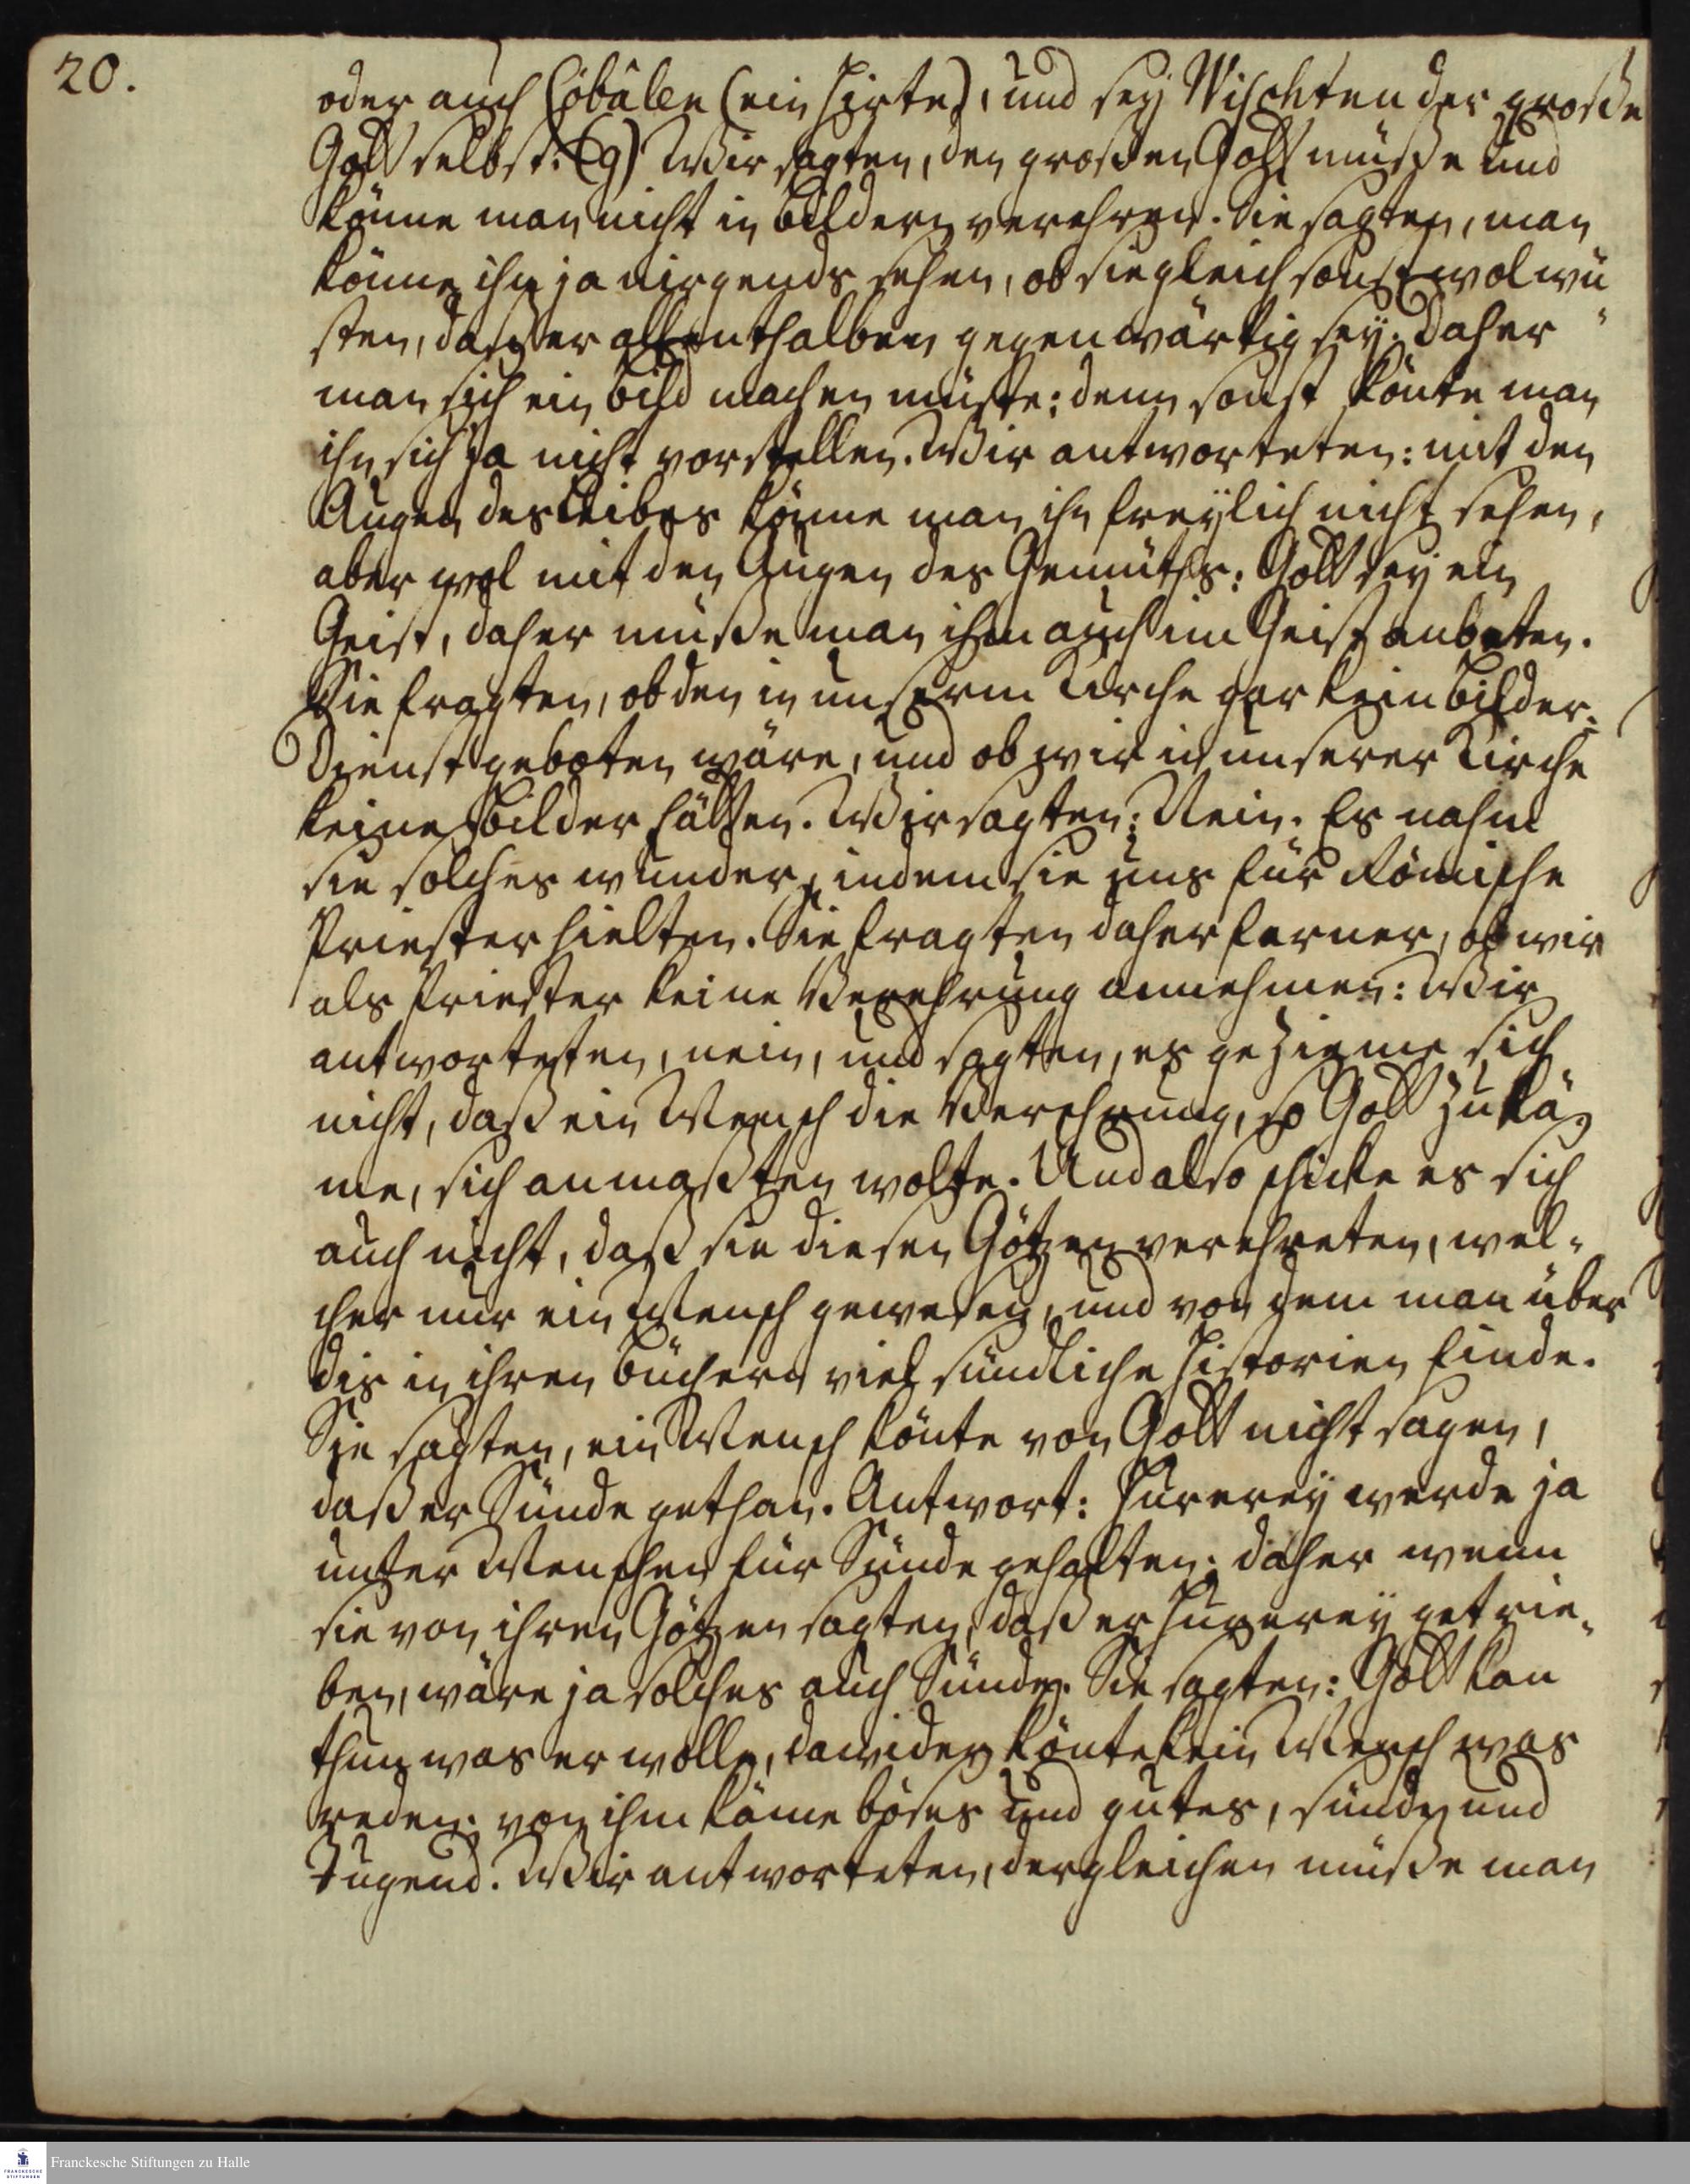 20.
oder auch Cöbâlen (ein Hirte), und sey Wischtnu der große
Gott selbst. (g) Wir sagten, den großen Gott müße und
könne man nicht in Bildern verehren. Sie sagten, man
könne ihn ja nirgends sehen, ob sie gleich sonst wol wü-
sten, daß er allenthalben gegenwärtig sey. Daher
man sich ein Bild machen müste: denn sonst könte man
ihn sich ja nicht vorstellen. Wir antworteten: mit den
Augen des Leibes könne man ihn freylich nicht sehen,
aber wol mit den Augen des Gemüths: Gott sey ein
Geist, daher müße man ihm auch im Geist anbeten.
Sie fragten, ob den in unserm Kirche gar kein Bilder-
Dienst geboten wäre, und ob wir in unserer Kirche
keine Bilder hätten. Wir sagten: Nein. Es nahm
sie solches wunder, indem sie uns für Römische
Priester hielten. Sie fragten daher ferner, ob wir
als Priester keine Verehrung annehmen: Wir
antworteten, nein, und sagten, es gezieme sich
nicht, daß ein Mensch die Verehrung, so Gott zukä-
me, sich anmaßten wolte. Und also schicke es sich
auch nicht, daß sie diesen Götzen verehreten, wel-
cher nur ein Mensch gewesen, und von dem man über
dis in ihren Büchern viel sündliche Historien finde.
Sie sagten, ein Mensch könte von Gott nicht sagen,
daß er Sünde gethan. Antwort: Hurerey werde ja
unter Menschen für Sünde gehalten: daher wenn
sie von ihren Götzen sagten, daß er Hurerey getrie-
ben, wäre ja solches auch Sünde. Sie sagten: Gott kan
thun was er wolle, dawider könte kein Mensch was
reden: von ihm käme böses und gutes, sünde und
Tugend. Wir antworteten, dergleichen müße man
Franckesche Stiftungen zu Halle